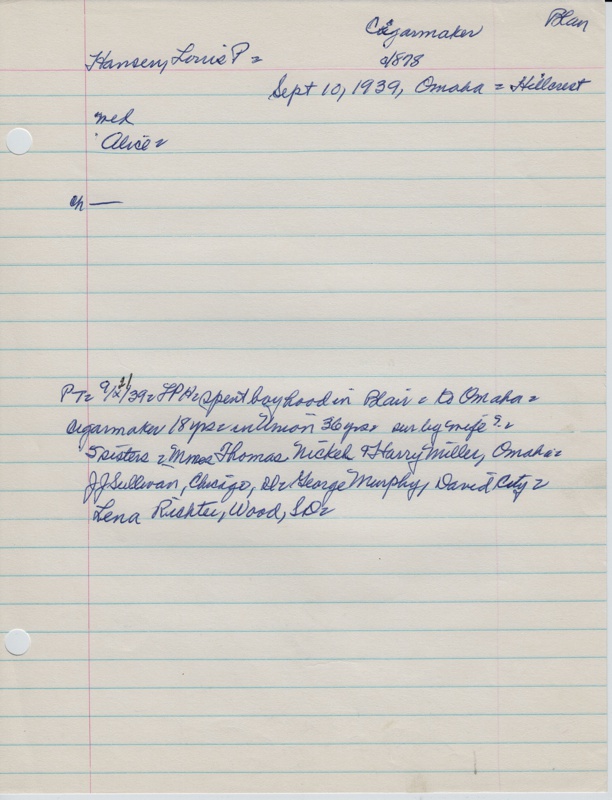 Blair
Cigarmaker
Hansen, Louis P =
c/1878
Sept 10, 1939, Omaha = Hillcrest
med
Alice =
ch —
PT= 9/21/39= LPH= spent boyhood in Blair = to Omaha =
cigarmaker 18 yrs = in Union 36 yrs = sur by wife &
5 sisters = Mmes Thomas Nickel & Harry Miller, Omaha =
JJ Sullivan, Chicago, George Murphy, David City =
Lena Richter, Wood, SD=